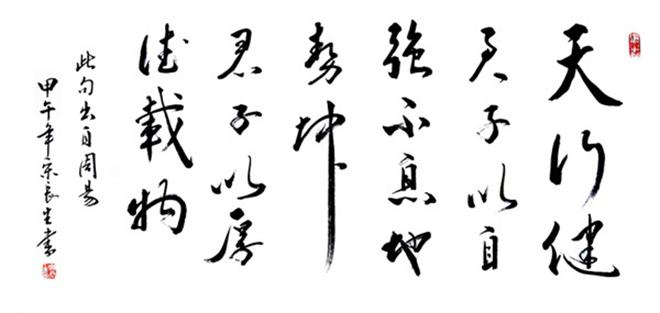 天行健
君子以自
強不息地
势坤
君子以厚
德載物
此句出自周易
甲午年宋長生書